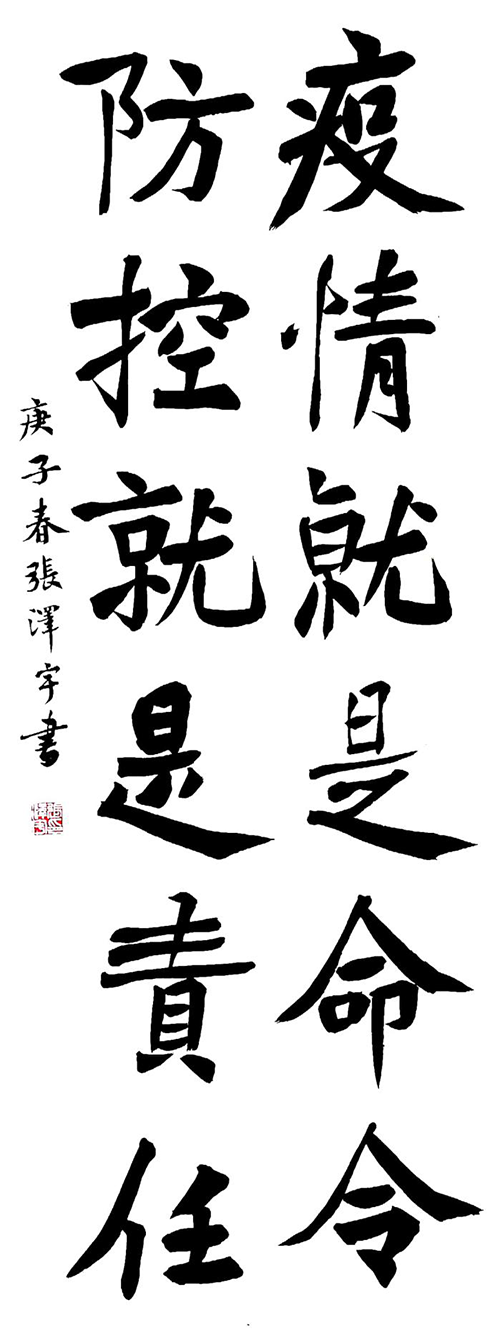 疫情就是命令
防控就是責任
庚子春張澤宇書